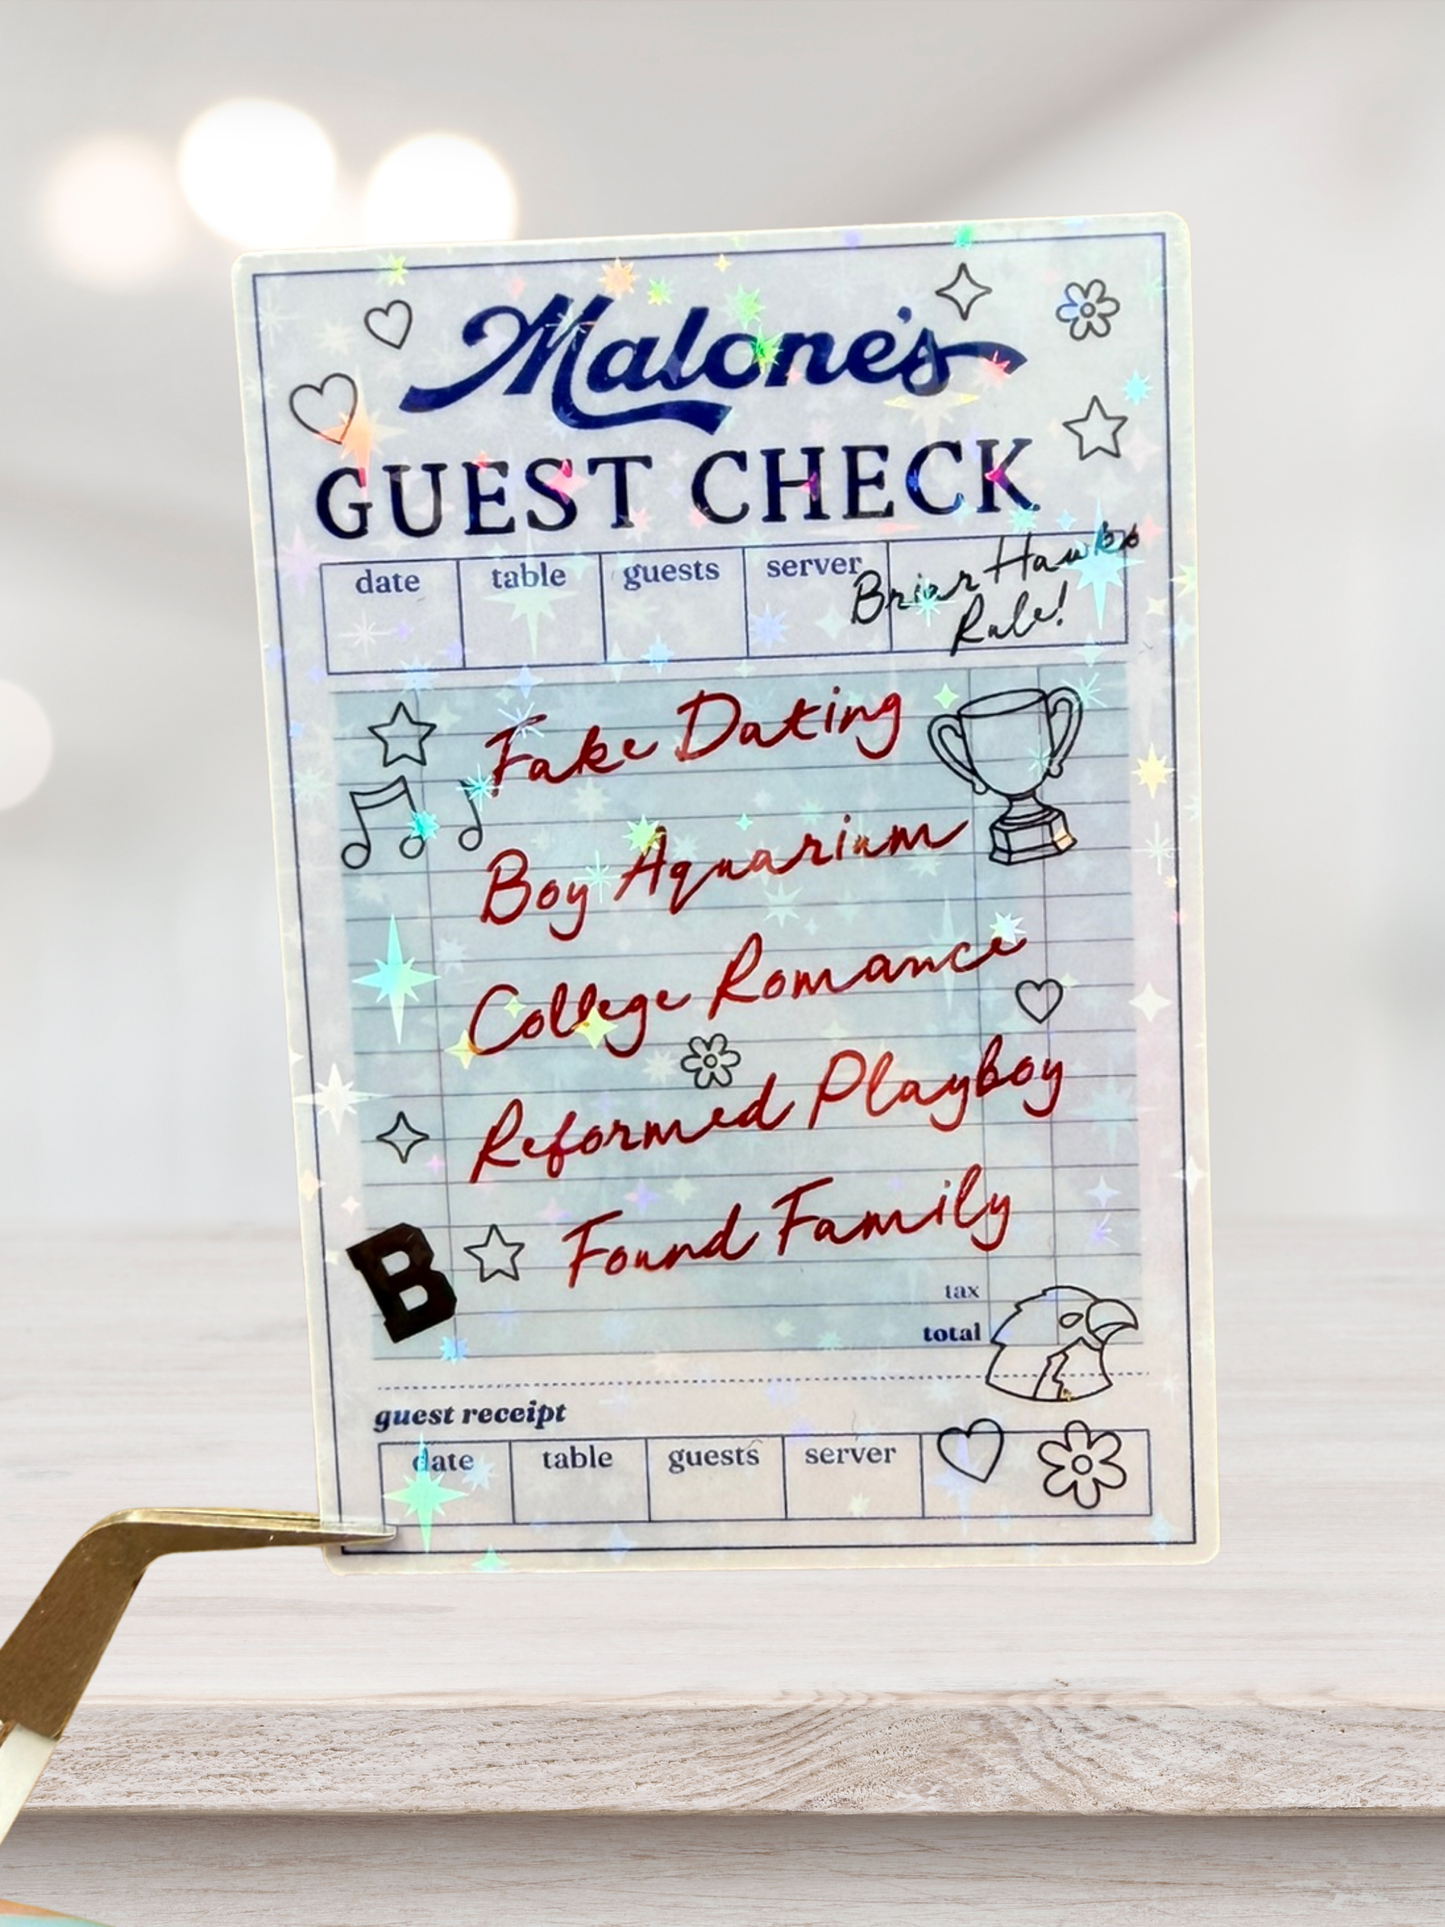 Malone's
GUEST CHECK
date table guests server
Briar Hawks
Rule!
Fake Dating
Boy Aquarium
College Romance
Reformed Playboy
B Found Family
tax
total
guest receipt
date table guests server